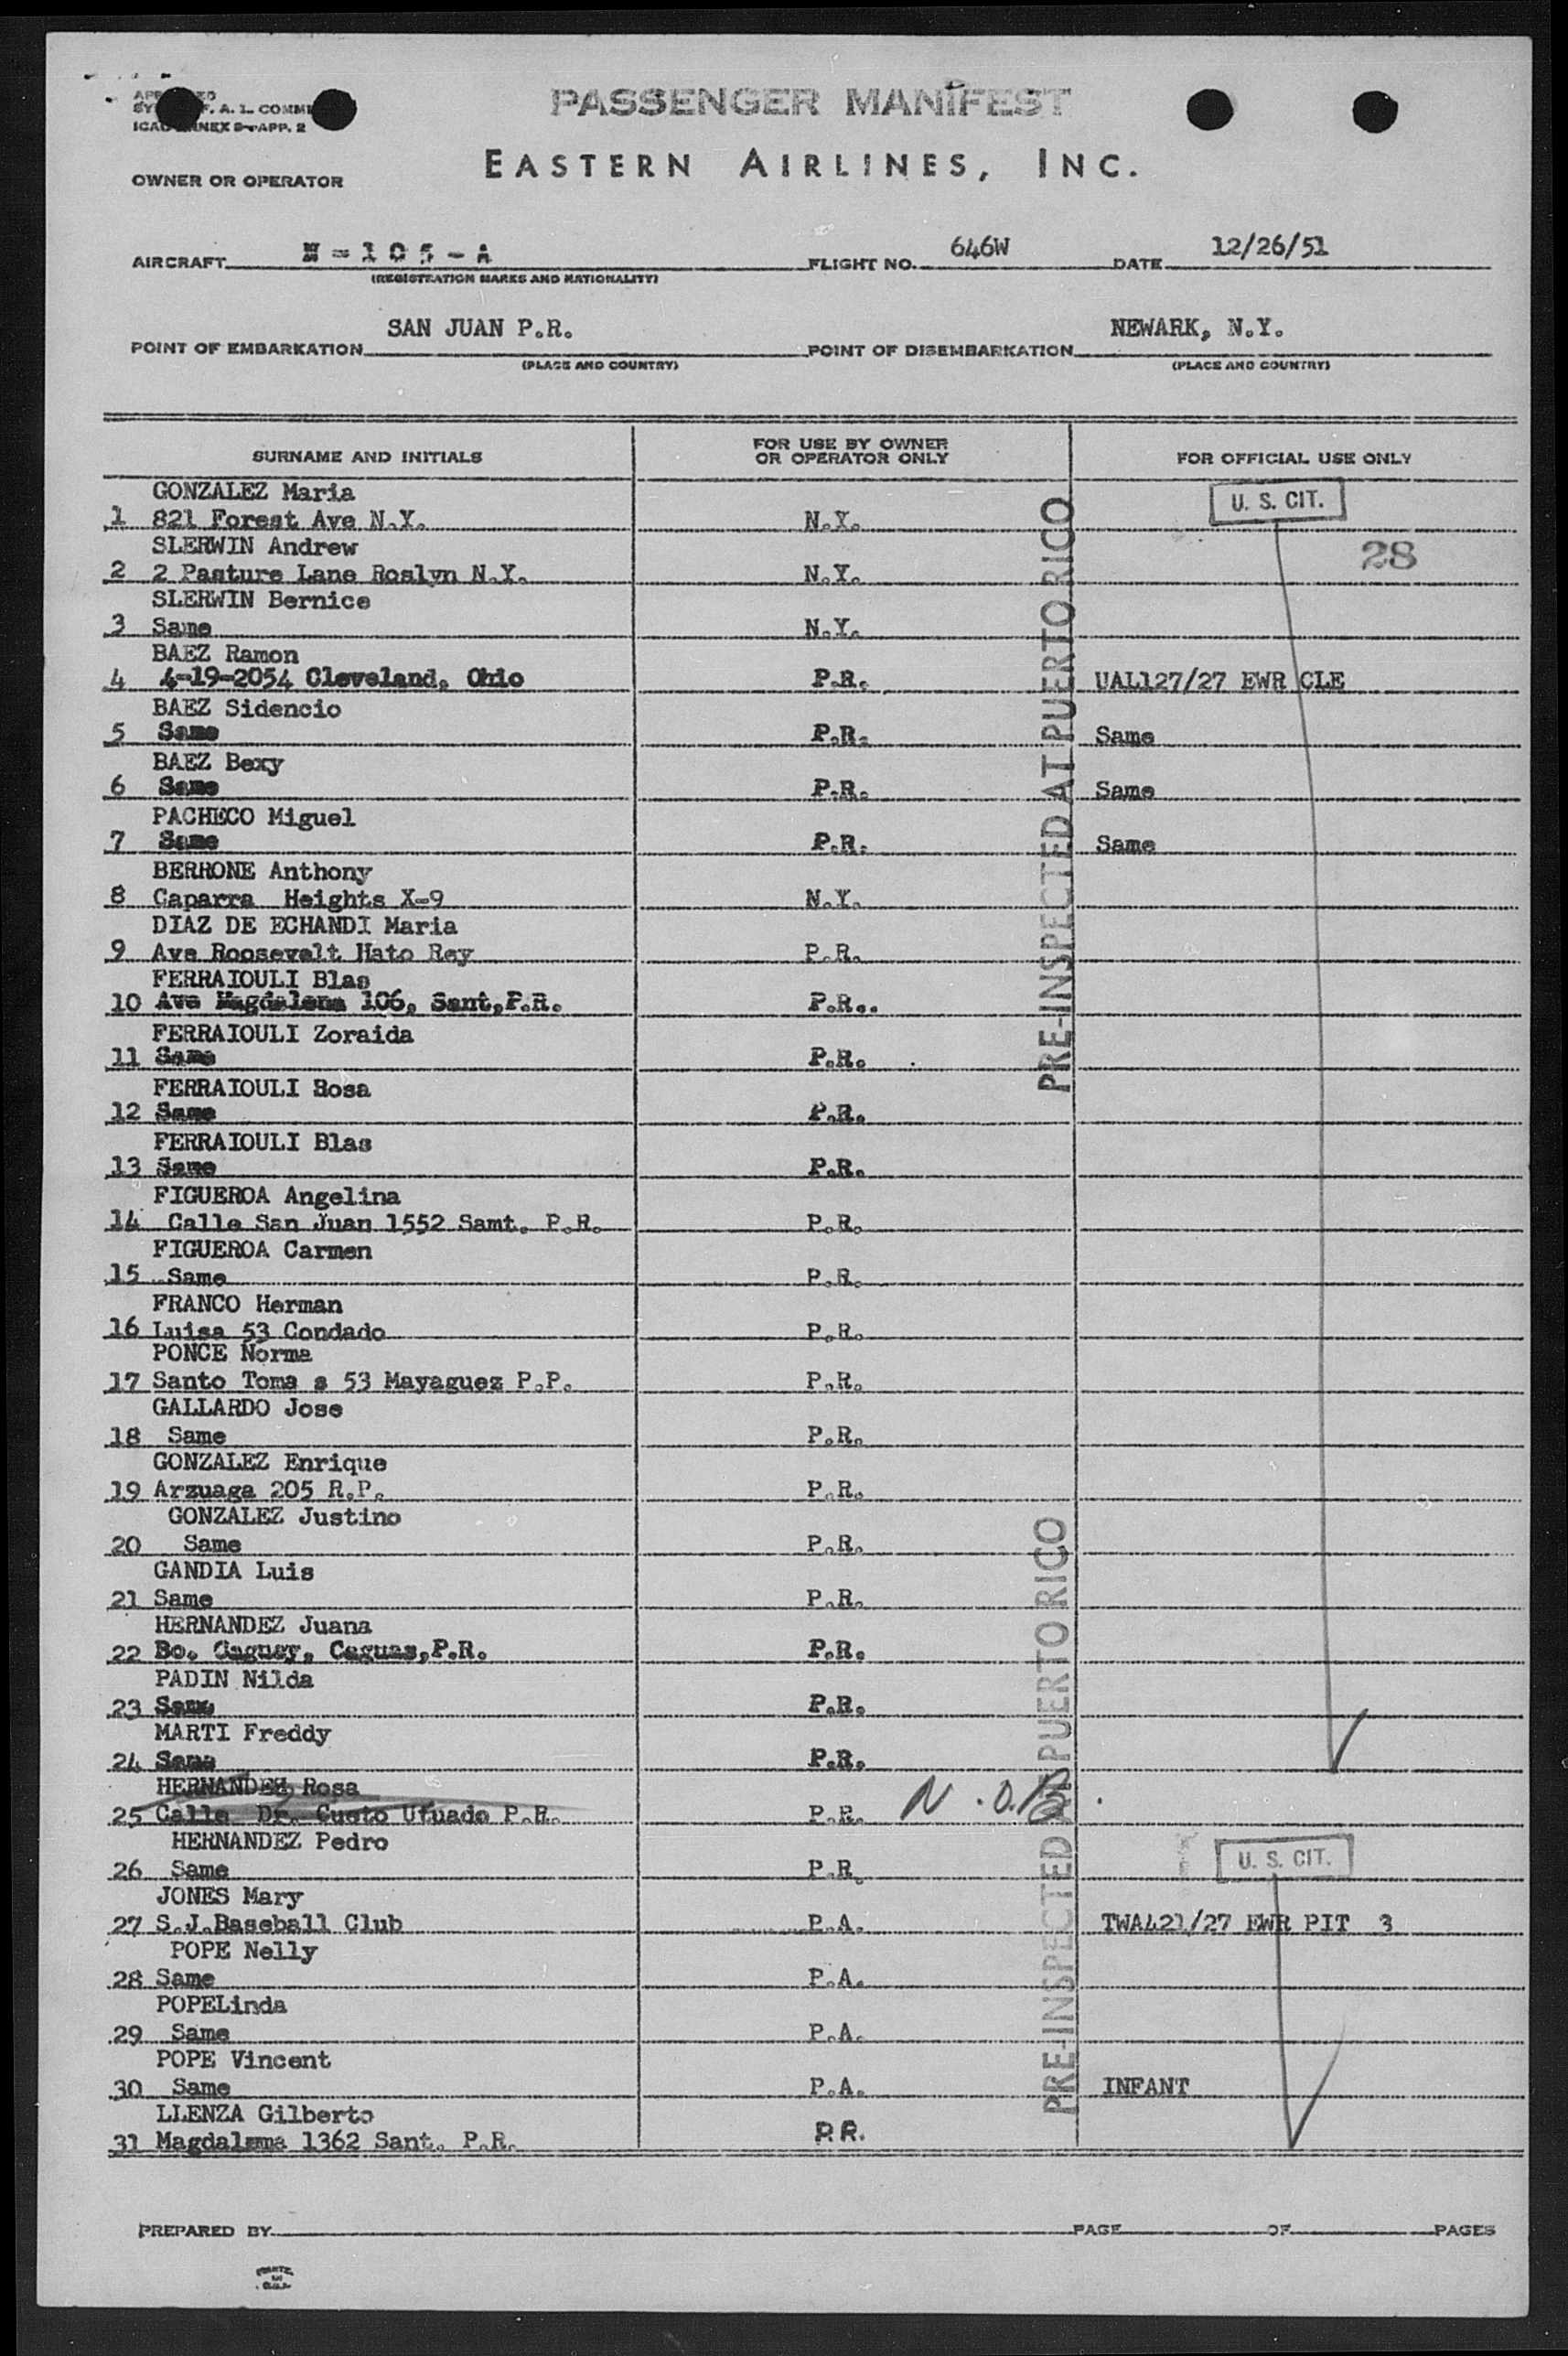 PASSENGER MANIFEST
F. A. L. COMMI
ICAO ANNEX 9-APP. 2
EASTERN AIRLINES, INC.
OWNER OR OPERATOR
AIRCRAFT N-105-A FLIGHT NO. 646W DATE 12/26/51
(REGISTRATION MARKS AND NATIONALITY)
POINT OF EMBARKATION SAN JUAN P.R. POINT OF DISEMBARKATION NEWARK, N.Y.
(PLACE AND COUNTRY) (PLACE AND COUNTRY)
SURNAME AND INITIALS FOR USE BY OWNER OR OPERATOR ONLY FOR OFFICIAL USE ONLY
GONZALEZ Maria U. S. CIT.
1 821 Forest Ave N.Y. N.Y.
SLERWIN Andrew 28
2 2 Pasture Lane Roslyn N.Y. N.Y.
SLERWIN Bernice
3 Same N.Y.
BAEZ Ramon
4 4-19-2054 Cleveland, Ohio P.R. UAL127/27 EWR CLE
BAEZ Sidencio
5 Same P.R. Same
BAEZ Bexy
6 Same P.R. Same
PACHECO Miguel
7 Same P.R. Same
BERRONE Anthony
8 Caparra Heights X-9 N.Y.
DIAZ DE ECHANDI Maria
9 Ave Roosevelt Hato Rey P.R.
FERRAIOULI Blas
10 Ave Magdalena 106, Sant,P.R. P.R..
FERRAIOULI Zoraida
11 Same P.R.
FERRAIOULI Rosa
12 Same P.R.
FERRAIOULI Blas
13 Same P.R.
PRE-INSPECTED AT PUERTO RICO
FIGUEROA Angelina
14 Calle San Juan 1552 Samt. P.R. P.R.
FIGUEROA Carmen
15 Same P.R.
FRANCO Herman
16 Luisa 53 Condado P.R.
PONCE Norma
17 Santo Toma s 53 Mayaguez P.P. P.R.
GALLARDO Jose
18 Same P.R.
GONZALEZ Enrique
19 Arzuaga 205 R.P. P.R.
GONZALEZ Justino
20 Same P.R.
GANDIA Luis
21 Same P.R.
HERNANDEZ Juana
22 Bo. Caguay, Caguas,P.R. P.R.
PADIN Nilda
23 Same P.R.
MARTI Freddy
24 Same P.R.
HERNANDEZ Rosa
25 Calle Dr. Cueto Utuado P.R. P.R. N.O.B.
HERNANDEZ Pedro
26 Same P.R. U. S. CIT.
JONES Mary
27 S.J.Baseball Club P.A. TWA421/27 EWR PIT 3
POPE Nelly
28 Same P.A.
POPELinda
29 Same P.A.
POPE Vincent
30 Same P.A. INFANT
LLENZA Gilberto
31 Magdalema 1362 Sant. P.R. P.R.
PRE-INSPECTED AT PUERTO RICO
PREPARED BY PAGE OF PAGES